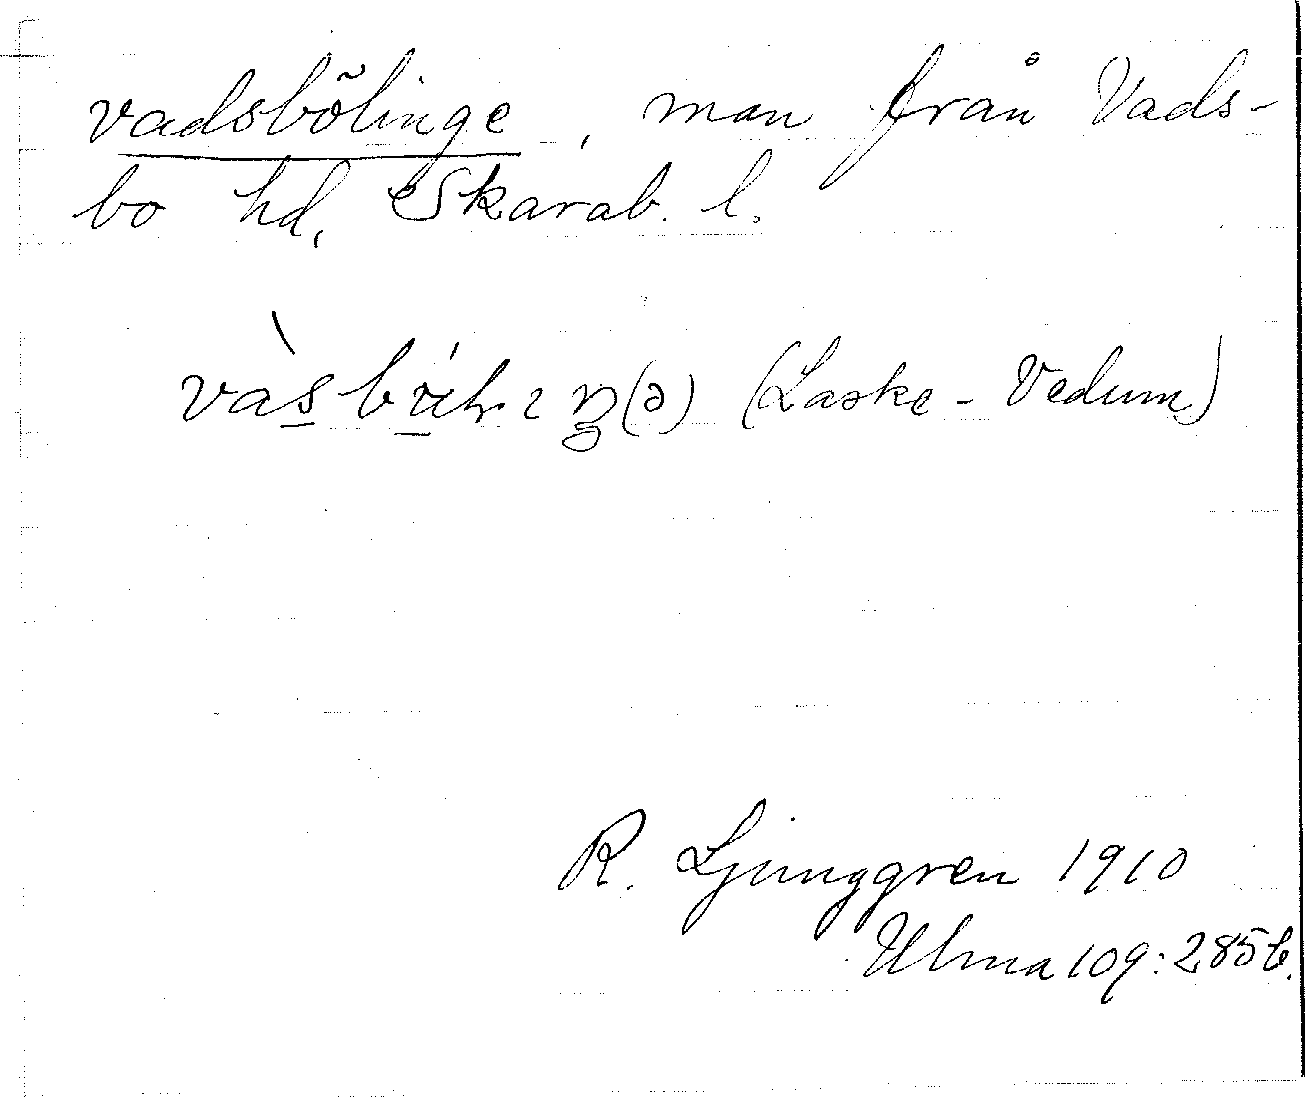 vadsbõlinge, man från Vads-
bo hd, Skarab. l.
(Laske-Vedum)
R. Ljunggren 1910
Ulma 109:285 b.